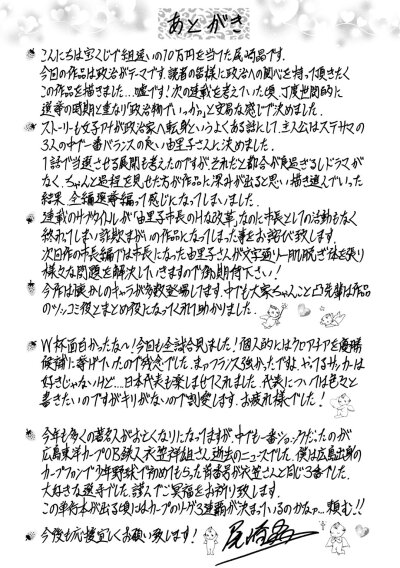 あとがき
こんにちは宝くじで組違いの10万円を当てた尾崎晶です。
今回の作品は政治がテーマです。読者の皆様に政治への関心を持って頂きたく
この作品を描きました…嘘です！次の連載を考えていた頃、丁度世間的に
選挙の時期と重なり「政治物でいっかぁ」と安易な感じで決めました。
ストーリーも女子アナが政治家へ転身というよくある話にして、主人公はステサマの
3人の中で一番バランスの良い由里子さんに決めました。
1話で当選させる展開も考えたのですが、それだと都合が良過ぎるしドラマが
なく、ちゃんと過程を見せた方が作品に深みが出ると思い描き進んでいった
結果、全編選挙編って感じになってしまいました。
連載のサブタイトルが「由里子市長のHな改革」なのに市長としての活動もなく
終わってしまい詐欺まがいの作品になってしまった事をお詫び致します。
次回作の市長編では市長になった由里子さんが文字通り一肌脱ぎ法を張り
様々な問題を解決していきますので御期待下さい！
今作は懐かしのキャラが多数登場してます。中でも大家ちゃんこと凸先輩は作品
のツッコミ役とまとめ役になってくれて助かりました。
W杯面白かったな～！今回も全試合見ました！個人的にはクロアチアを優勝
候補に挙げていたので残念でした。まぁフランス強かったですね、やってるサッカーは
好きじゃないけど…日本代表も楽しませてくれました。代表については色々と
書きたいのですがキリがないので割愛します。お疲れ様でした！
今年も多くの著名人がお亡くなりになってますが、中でも一番ショックだったのが
広島東洋カープOB鉄人衣笠祥雄さん逝去のニュースでした。僕は広島出身の
カープファンで少年野球で初めてもらった背番号が衣笠さんと同じ3番でした。
大好きな選手でした。謹んでご冥福をお祈り致します。
この単行本が出る頃にはカープのリーグ3連覇が決まっているのかなぁ…頼む！！
今後も応援宜しくお願い致します！
尾崎晶